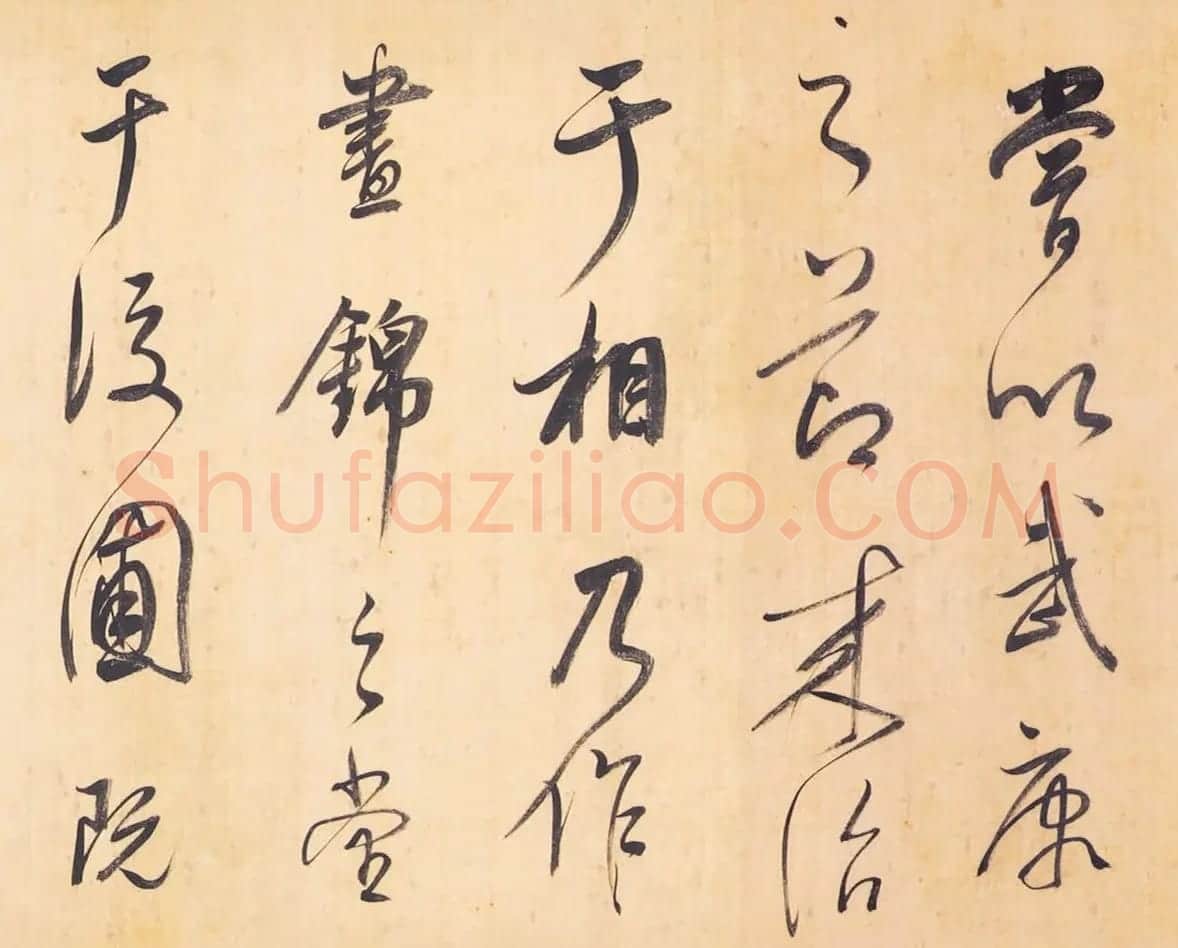 嘗以武康
之節來治
于相乃作
晝錦之堂
于後圃既
Shufaziliao.COM